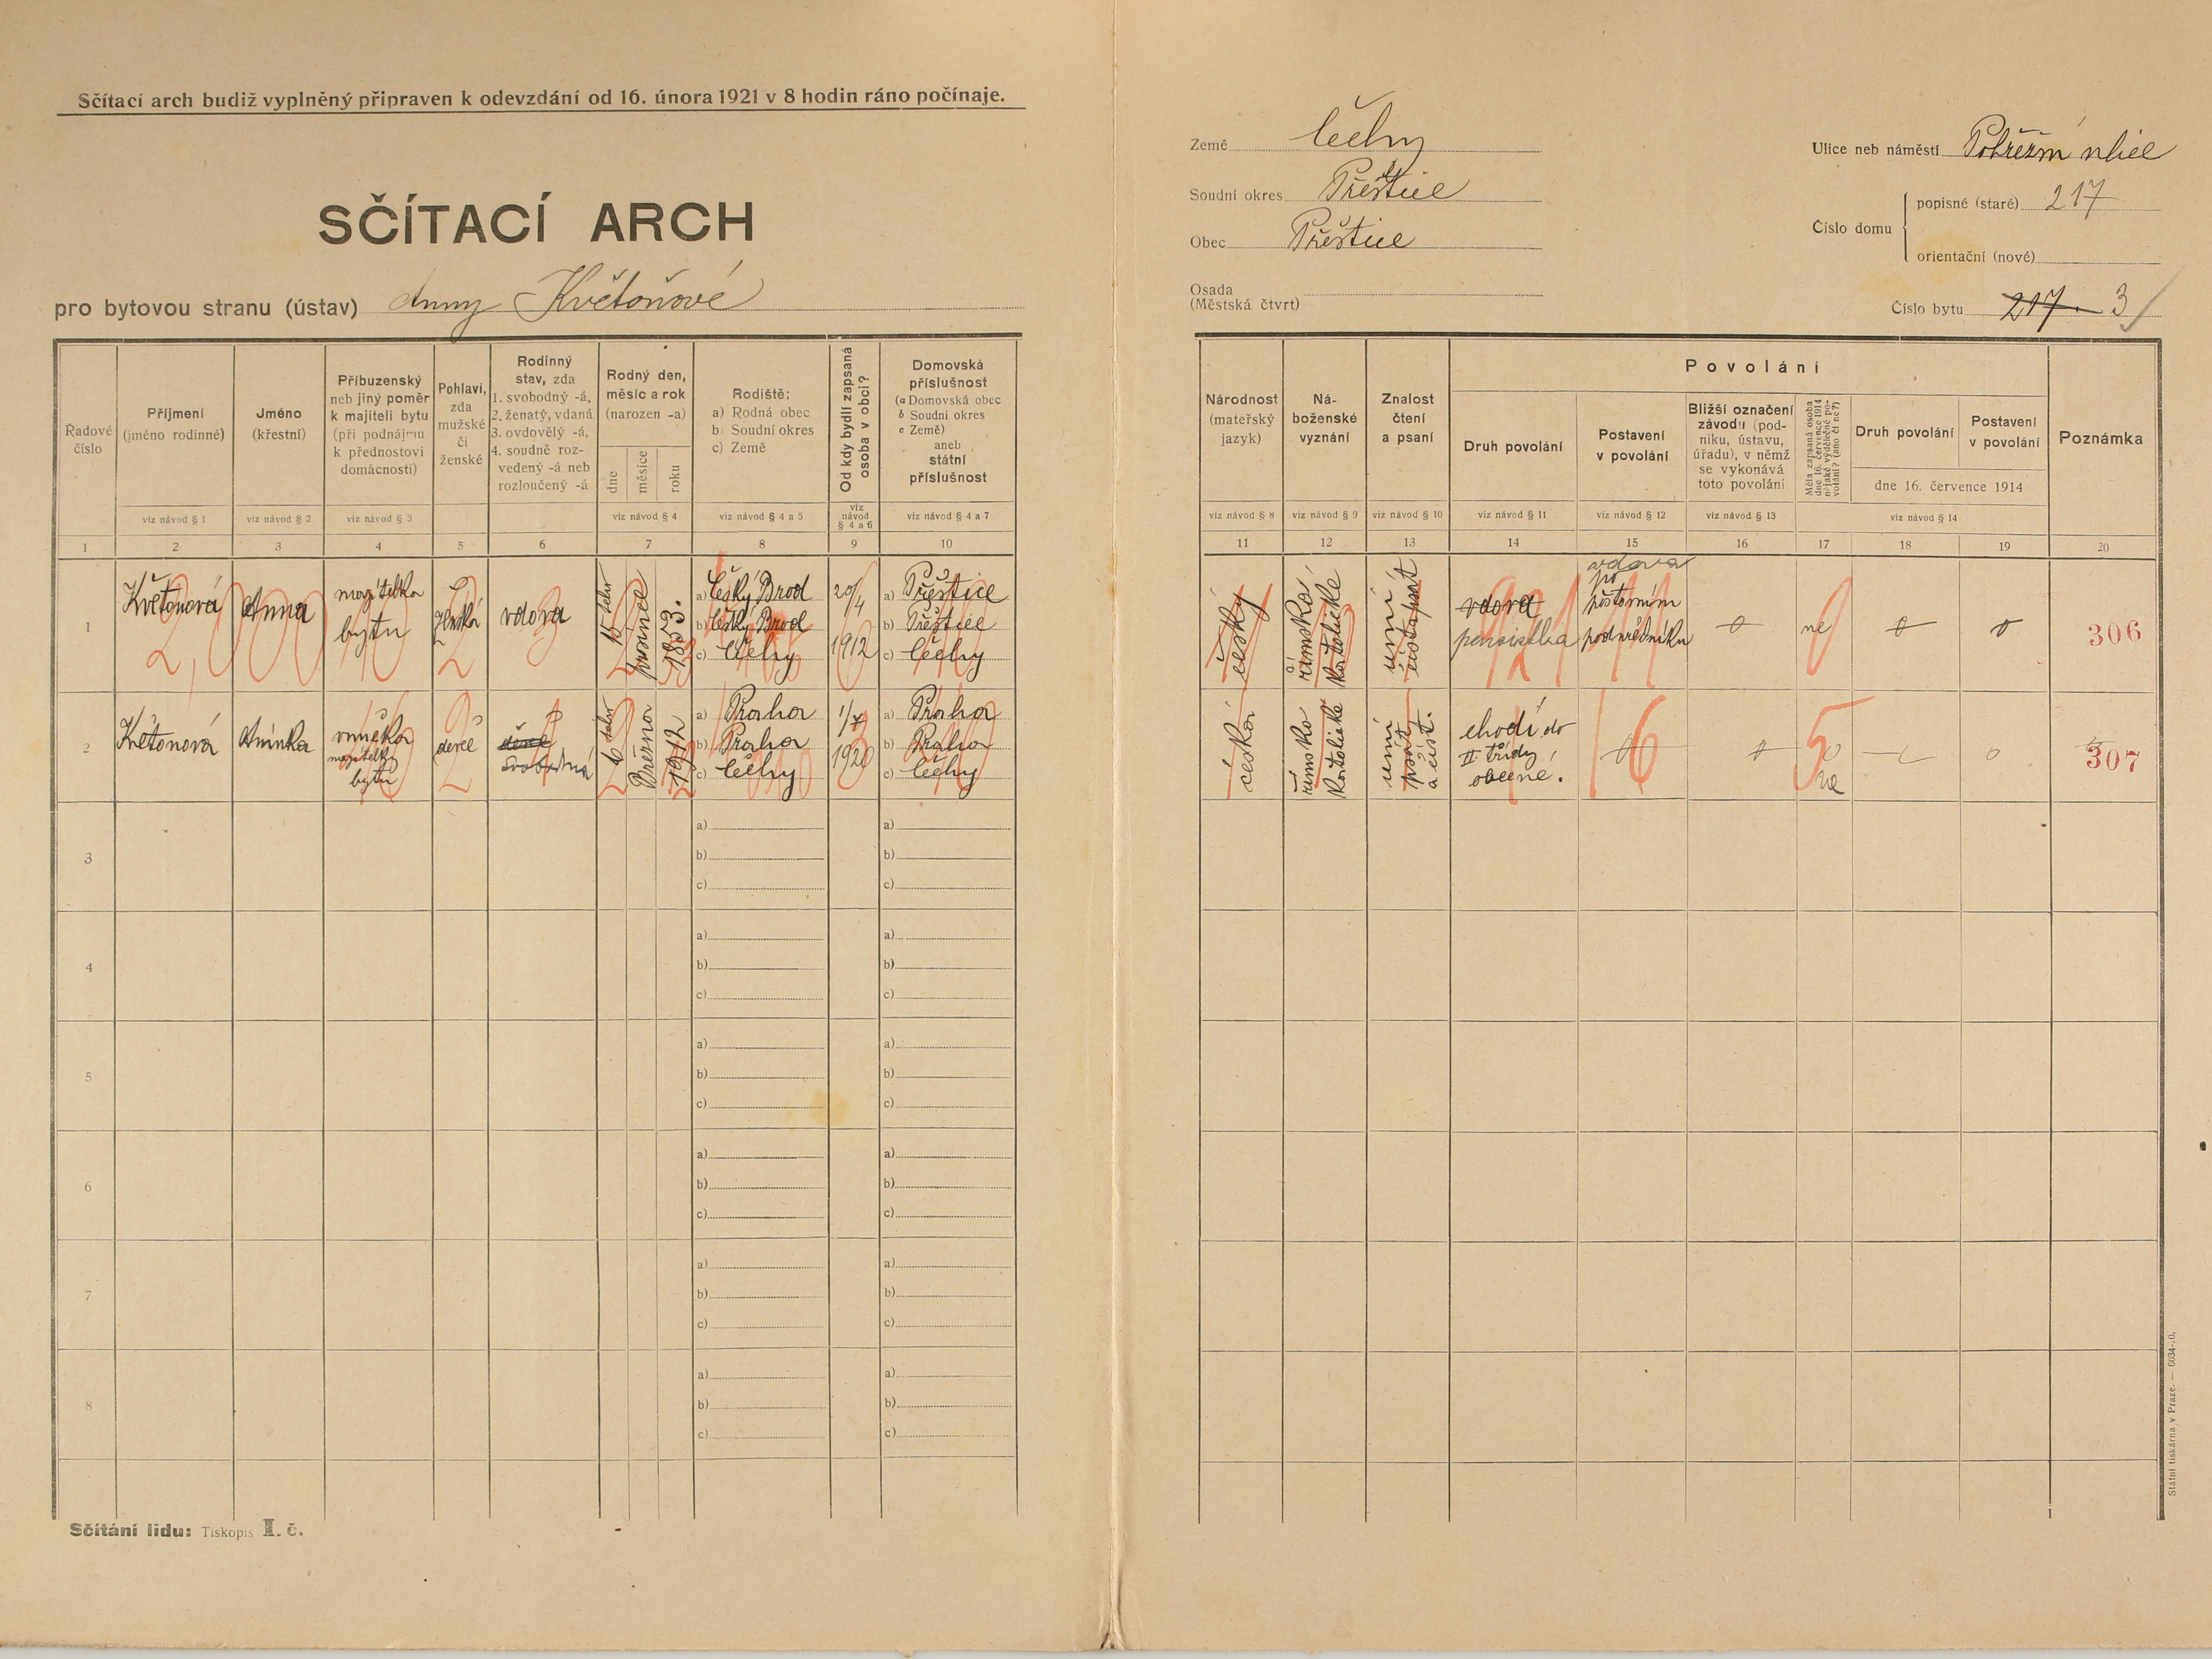 Sčítací arch budiž vyplněný připraven k odevzdání od 16. února 1921 v 8 hodin ráno počínaje.
SČÍTACÍ ARCH
pro bytovou stranu (ústav) Anny Květoňové
Země Čechy
Soudní okres Přeštice
Obec Přeštice
Osada
(Městská čtvrt)
Ulice neb náměstí
Číslo domu
popisné (staré) 217
orientační (nové)
Číslo bytu 217. 3
Řadové
číslo
Příjmení
(jméno rodinné)
viz návod § 1
Jméno
(křestní)
viz návod § 2
Příbuzenský
neb jiný poměr
k majiteli bytu
(při podnájmu
k přednostovi
domácnosti)
viz návod § 3
Pohlaví,
zda
mužské
či
ženské
Rodinný
stav, zda
1. svobodný -á,
2. ženatý, vdaná
3. ovdovělý -á,
4. soudně roz-
vedený -á neb
rozloučený -á
Rodný den,
měsíc a rok
(narozen -a)
dne
měsíce
roku
viz návod § 4
Rodiště:
a) Rodná obec
b) Soudní okres
c) Země
viz návod § 4 a 5
Od kdy bydlí zapsaná
osoba v obci?
viz
návod
§ 4 a 6
Domovská
příslušnost
(a Domovská obec
b Soudní okres
c Země)
aneb
státní
příslušnost
viz návod § 4 a 7
Národnost
(mateřský
jazyk)
viz návod § 8
Ná-
boženské
vyznání
viz návod § 9
Znalost
čtení
a psaní
viz návod § 10
Povolání
Druh povolání
viz návod § 11
Postavení
v povolání
viz návod § 12
Bližší označení
závodu (pod-
niku, ústavu,
úřadu), v němž
se vykonává
toto povolání
viz návod § 13
Měla zapsaná osoba
dne 16. července 1914
nějaké výdělečné po-
volání? (ano či ne?)
Druh povolání
Postavení
v povolání
dne 16. července 1914
viz návod § 14
Poznámka
1 2 3 4 5 6 7 8 9 10 11 12 13 14 15 16 17 18 19 20
1
Květoňová
Anna
majitelka
bytu
ženská
vdova
15 prosince 1853.
a) Český Brod
b) Český Brod
c) Čechy
20/4
1912
a) Přeštice
b) Přeštice
c) Čechy
česky
římsko
katolické
umí
číst a psát
vdova
pensistka
vdova
po
poštovním
podúředníku
ne
306
2
Květonová
Aninka
vnučka
majitelky
bytu
děvče
svobodná
6 Března 1912
a) Praha
b) Praha
c) Čechy
1/7
1920
a) Praha
b) Praha
c) Čechy
česká
římsko
katolické
umí
psát
a číst.
chodí do
II třídy
obecné.
ne
307
3
a)
b)
c)
a)
b)
c)
4
a)
b)
c)
a)
b)
c)
5
a)
b)
c)
a)
b)
c)
6
a)
b)
c)
a)
b)
c)
7
a)
b)
c)
a)
b)
c)
8
a)
b)
c)
a)
b)
c)
Sčítání lidu: Tiskopis I. č.
Státní tiskárna v Praze. — 6034-20.